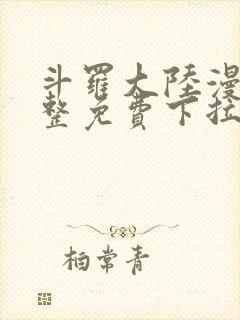 斗羅大陸漫
整免費下拉
柏常青